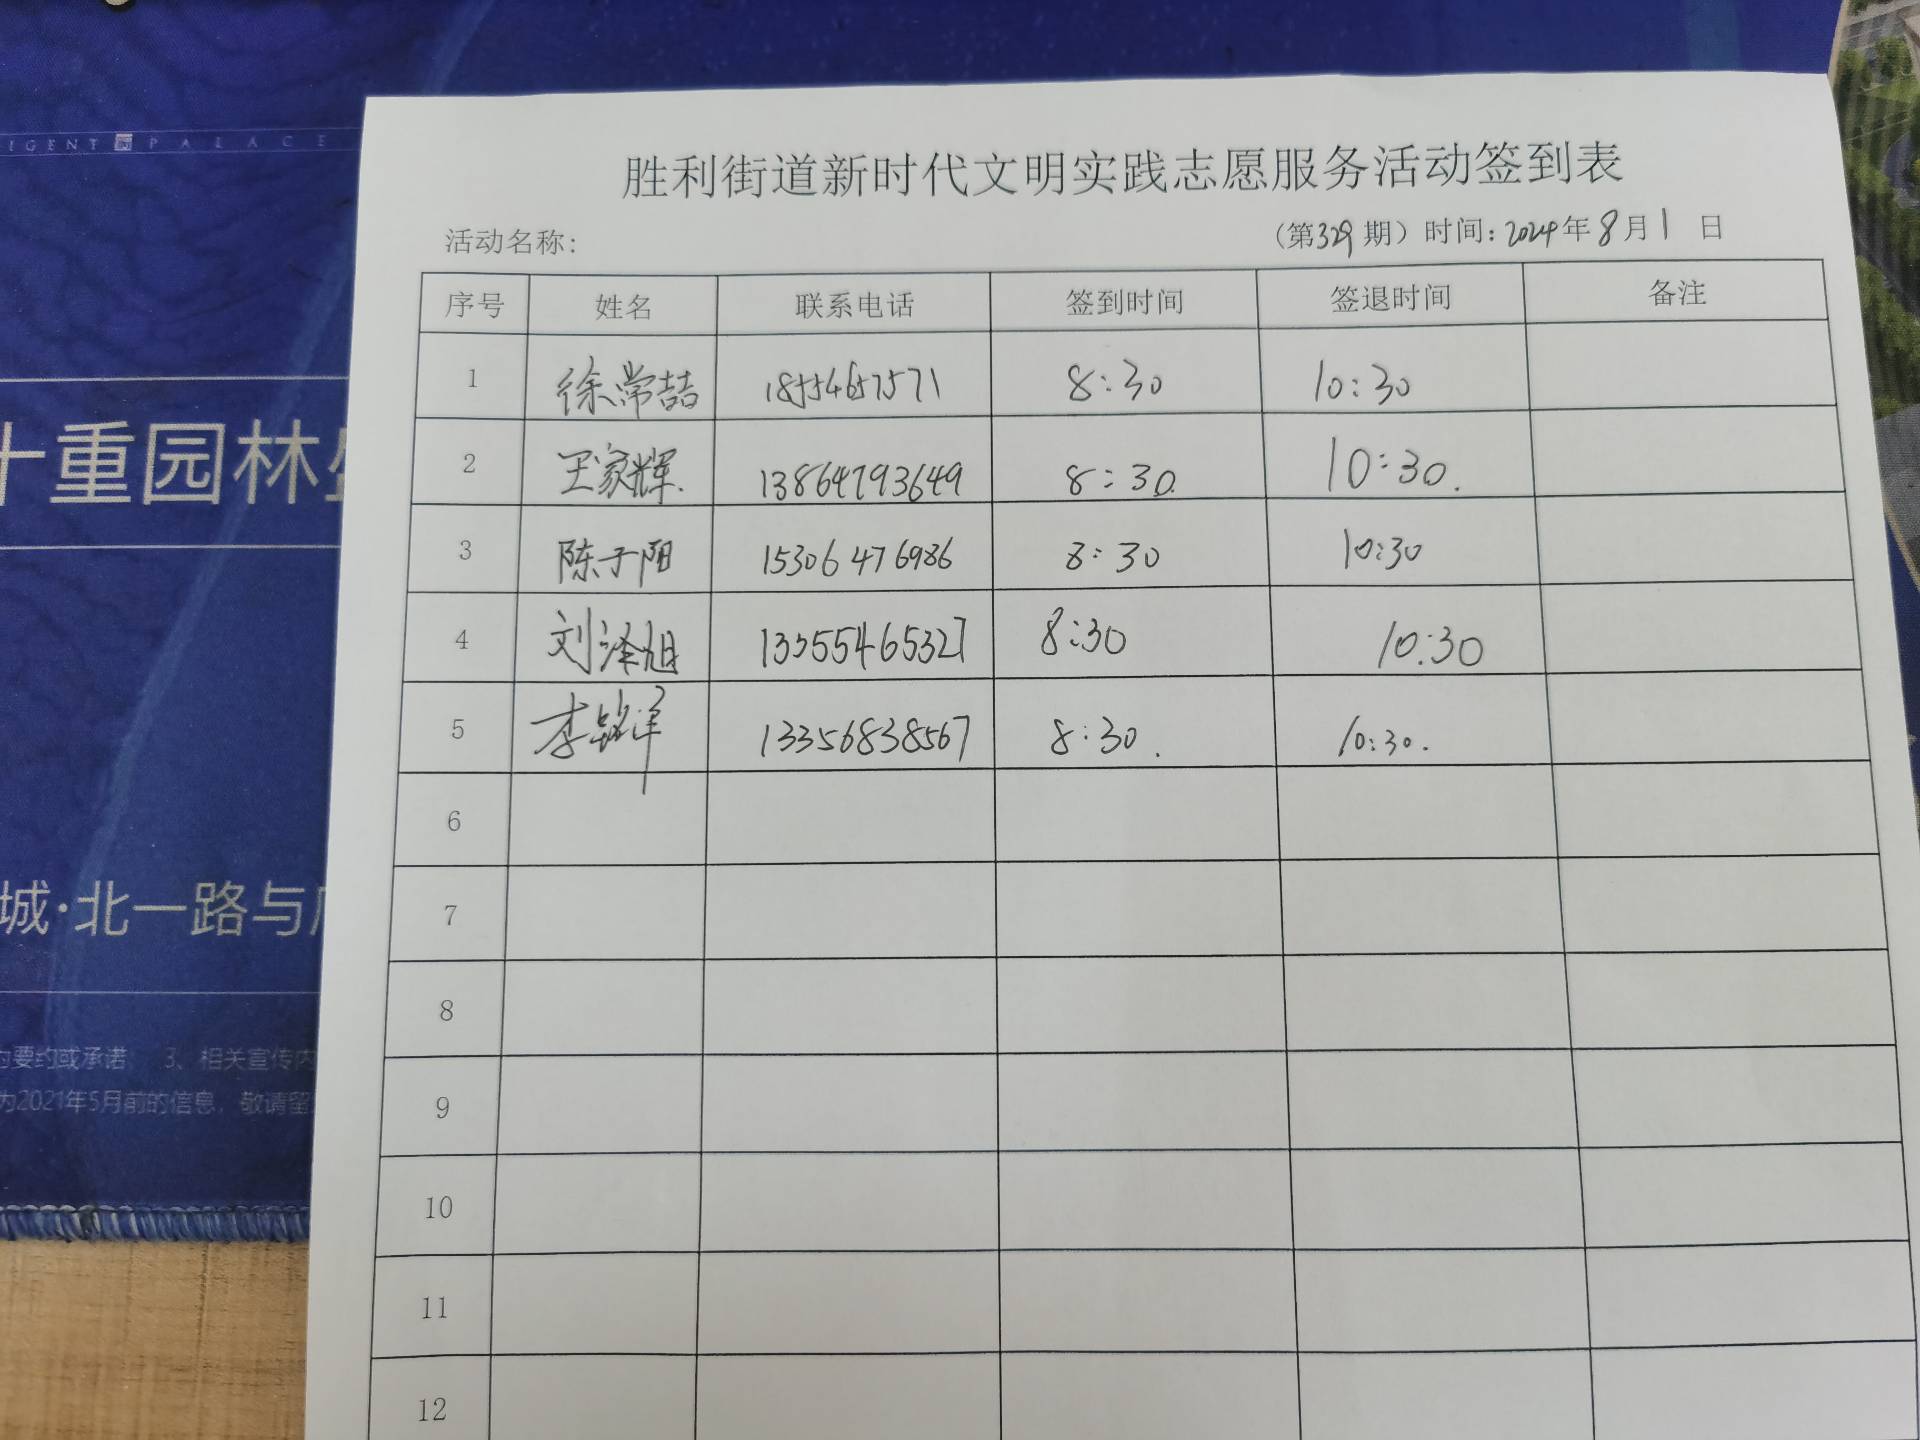 IGENT PALACE
十重园林
城·北一路与
为要约或承诺; 3、相关宣传内
为2021年5月前的信息, 敬请留
胜利街道新时代文明实践志愿服务活动签到表
活动名称: (第329期) 时间: 2024年8月1日
序号 姓名 联系电话 签到时间 签退时间 备注
1 徐常喆 18554657571 8:30 10:30
2 王家辉. 13864793649 8:30. 10:30.
3 陈于阳 15306476986 8:30 10:30
4 刘泽旭 13355465327 8:30 10:30
5 李铭洋 13356838567 8:30. 10:30.
6
7
8
9
10
11
12